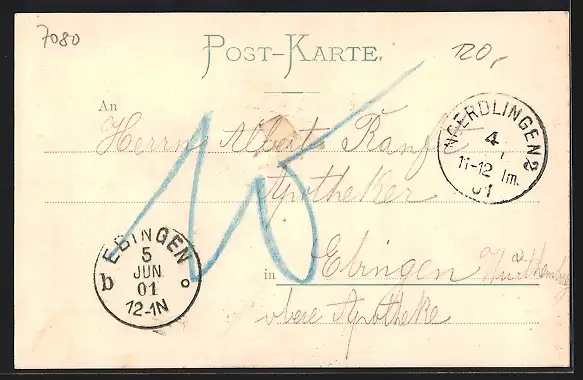 7080
POST-KARTE.
120,-
An
Herrn Albert
NOERDLINGEN 2
4
11-12 Vm.
01
Apotheker
15
EBINGEN
5
JUN
01
12-1N
b
in Ebingen Württemberg
obere Apotheke